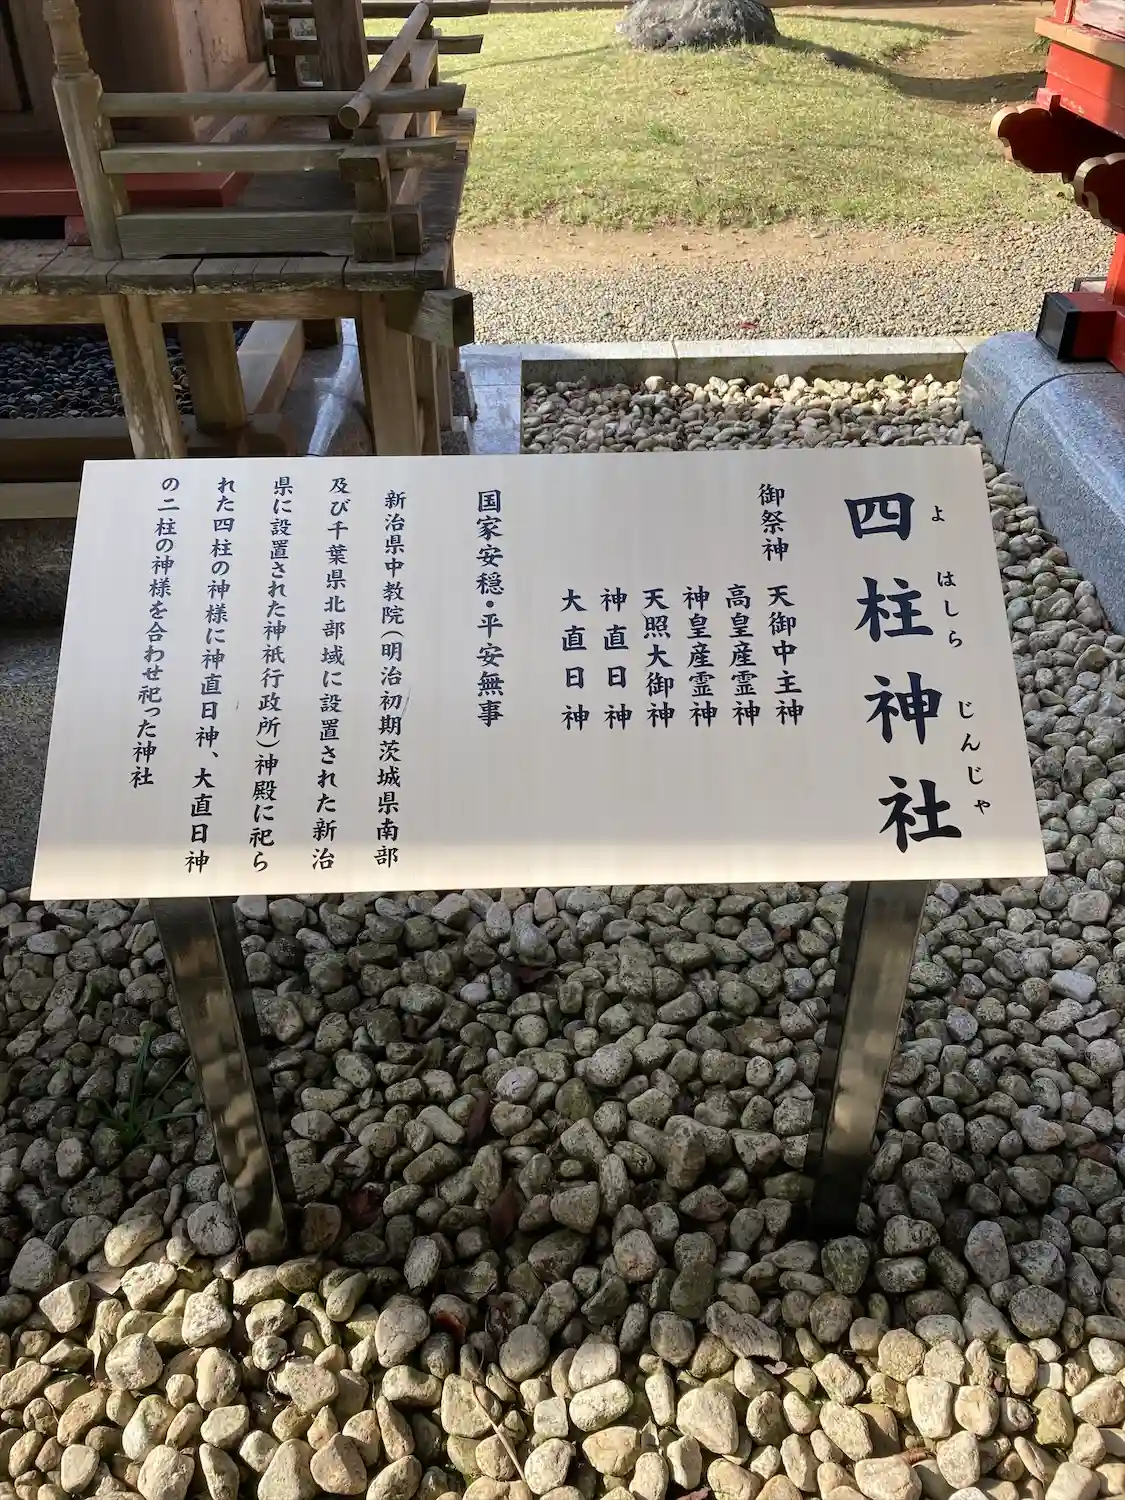 四柱神社
よ はしら じんじゃ
御祭神 天御中主神
高皇産霊神
神皇産霊神
天照大御神
神直日神
大直日神
国家安穏・平安無事
新治県中教院(明治初期茨城県南部
及び千葉県北部域に設置された新治
県に設置された神祇行政所)神殿に祀ら
れた四柱の神様に神直日神、大直日神
の二柱の神様を合わせ祀った神社